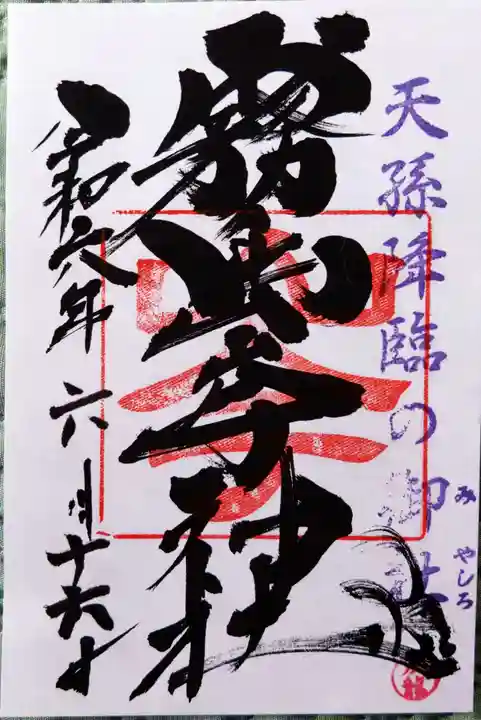 天孫降臨の御社
み やしろ
霧島岑神社
令和六年六月十六日